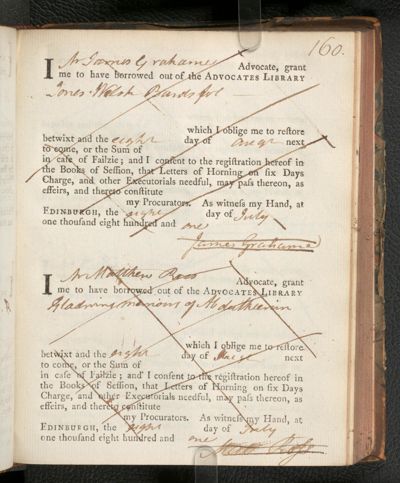 160.
I Mr James Grahame Advocate, grant
me to have borrowed out of the ADVOCATES LIBRARY
Jones Welsh Bards fol
which I oblige me to reſtore
betwixt and the eight day of next
to come, or the Sum of
in caſe of Failzie; and I conſent to the regiſtration hereof in
the Books of Seſſion, that Letters of Horning on ſix Days
Charge, and other Executorials needful, may paſs thereon, as
effeirs, and thereto conſtitute
my Procurators. As witneſs my Hand, at
EDINBURGH, the eight day of July
one thouſand eight hundred and one
James Grahame
I Mr Matthew Ross Advocate, grant
me to have borrowed out of the ADVOCATES LIBRARY
of
which I oblige me to reſtore
betwixt and the eight day of next
to come, or the Sum of
in caſe of Failzie; and I conſent to the regiſtration hereof in
the Books of Seſſion, that Letters of Horning on ſix Days
Charge, and other Executorials needful, may paſs thereon, as
effeirs, and thereto conſtitute
my Procurators. As witneſs my Hand, at
EDINBURGH, the eight day of July
one thouſand eight hundred and one
Matt Roſs